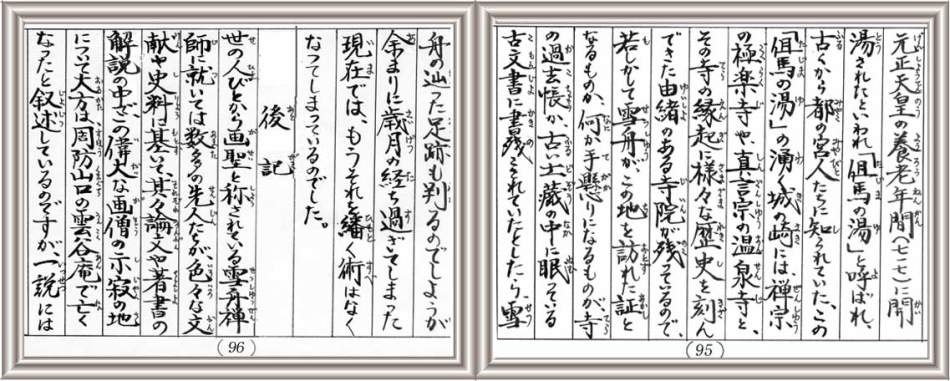 元正天皇の養老年間(七一七)に開
湯されたといわれ「但馬の湯」と呼ばれ、
古くから都の宮人たちに知られていた、この
「但馬の湯」の湧く城の崎には、禅宗
の極楽寺や、真言宗の温泉寺と、
その寺の縁起に様々な歴史を刻ん
できた由緒のある寺院が残っているので、
若しかして雪舟が、この地を訪れた証と
なるものか、何か手懸りになるものが、寺
の過去帳か、古い土蔵の中に眠っている
古文書に書残されていたとしたら雪
(95)
舟の辿った足跡も判るのでしょうが
余まりに歳月の経ち過ぎてしまった
現在では、もうそれを繙く術はなく
なってしまっているのでした。
後記
世の人びとから画聖と称されている雪舟禅
師に就いては数多の先人たちが、色々な文
献や史料に基いて、其々論文や著書の
解説の中でこの偉大な画僧の示寂の地
について大方は、周防山口の雲谷庵で亡く
なったと叙述しているのですが、一説には
(96)